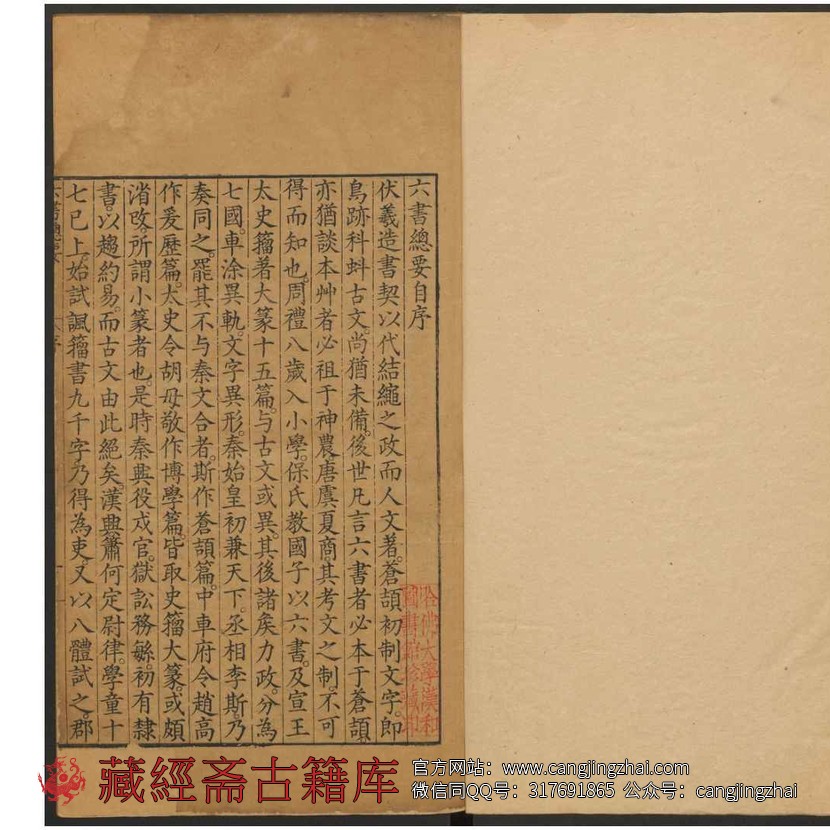 六書總要自序
伏羲造書契以代結繩之政而人文著蒼頡初制文字即
鳥跡科蚪古文尚猶未備後世凡言六書者必本于蒼頡
亦猶談本艸者必祖于神農唐虞夏商其考文之制不可
得而知也周禮八歲入小學保氏教國子以六書及宣王
太史籀著大篆十五篇与古文或異其後諸矦力政分為
七國車涂異軌文字異形秦始皇初兼天下丞相李斯乃
奏同之罷其不与秦文合者斯作蒼頡篇中車府令趙高
作爰歷篇太史令胡母敬作博學篇皆取史籀大篆或頗
渻改所謂小篆者也是時秦興役戍官獄訟務緐初有隸
書以趨約易而古文由此絕矣漢興蕭何定尉律學童十
七已上始試諷籀書九千字乃得為吏又以八體試之郡
哈佛大學漢和
圖書館珍藏印
藏經斋古籍库
官方网站：www.cangjingzhai.com
微信同QQ号：317691865 公众号：cangjingzhai